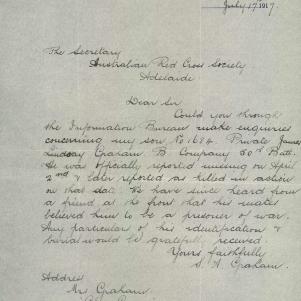 July 17 1917
The Secretary
Australian Red Cross Society
Adelaide
Dear Sir
Could you through
the Information Bureau make enquiries
concerning my son No 1684. Private James
Lindsay Graham. B Company 50th Batt.
He was officially reported missing on April
2nd & later reported as killed in action
on that date. We have since heard from
a friend at the front that his mates
believed him to be a prisoner of war.
Any particulars of his identification &
burial would be gratefully received
Yours faithfully
S. A. Graham.
Address
Mrs Graham